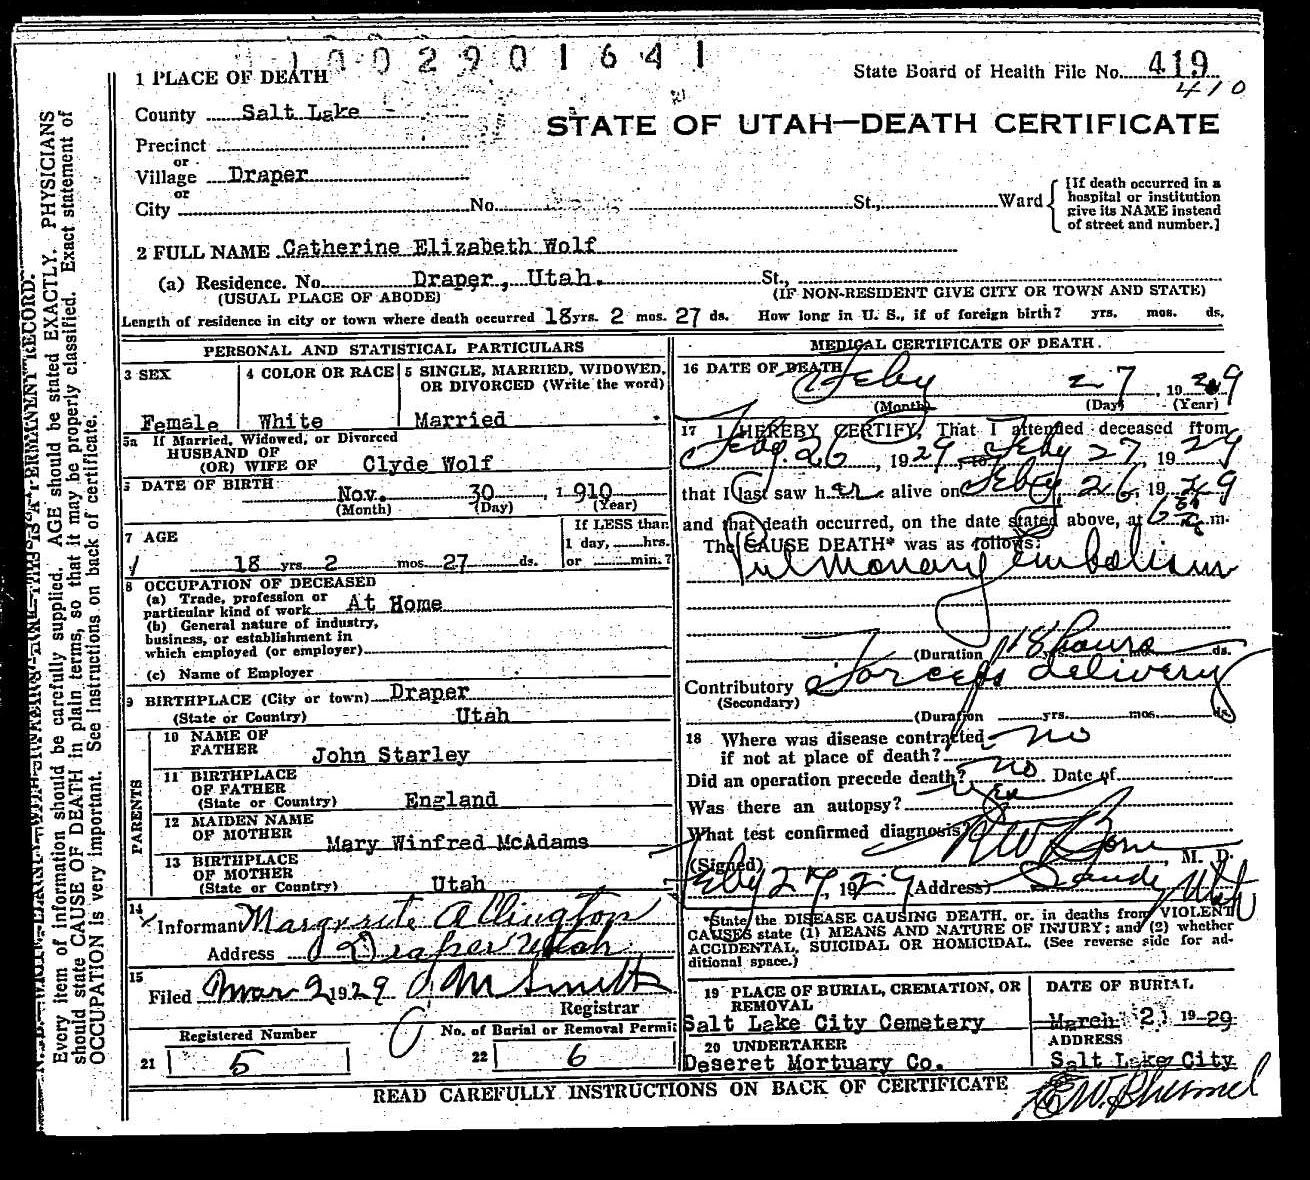 1002901641
1 PLACE OF DEATH
State Board of Health File No. 419
410
County Salt Lake
STATE OF UTAH—DEATH CERTIFICATE
Precinct
or
Village Draper
or
City No. St., Ward
[If death occurred in a
hospital or institution
give its NAME instead
of street and number.]
2 FULL NAME Catherine Elizabeth Wolf
(a) Residence. No. Draper, Utah. St.,
(USUAL PLACE OF ABODE) (IF NON-RESIDENT GIVE CITY OR TOWN AND STATE)
Length of residence in city or town where death occurred 18 yrs. 2 mos. 27 ds. How long in U. S., if of foreign birth? yrs. mos. ds.
PERSONAL AND STATISTICAL PARTICULARS
3 SEX
Female
4 COLOR OR RACE
White
5 SINGLE, MARRIED, WIDOWED,
OR DIVORCED (Write the word)
Married
5a If Married, Widowed, or Divorced
HUSBAND OF
(OR) WIFE OF Clyde Wolf
DATE OF BIRTH
Nov. 30, 1910
(Month) (Day) (Year)
7 AGE
18 yrs. 2 mos. 27 ds.
If LESS than
1 day, hrs.
or min.?
8 OCCUPATION OF DECEASED
(a) Trade, profession or
particular kind of work At Home
(b) General nature of industry,
business, or establishment in
which employed (or employer)
(c) Name of Employer
9 BIRTHPLACE (City or town) Draper
(State or Country) Utah
PARENTS
10 NAME OF
FATHER John Starley
11 BIRTHPLACE
OF FATHER
(State or Country) England
12 MAIDEN NAME
OF MOTHER Mary Winfred McAdams
13 BIRTHPLACE
OF MOTHER
(State or Country) Utah
14
Informant Margurite Allington
Address Draper Utah
15
Filed Mar 2 1929 J M Smith
Registrar
Registered Number
21 5
No. of Burial or Removal Permit
22 6
MEDICAL CERTIFICATE OF DEATH.
16 DATE OF DEATH
Feby 27, 1929
(Month) (Day) (Year)
17 I HEREBY CERTIFY, That I attended deceased from
Feby. 26, 1929, to Feby 27, 1929
that I last saw her alive on Feby 26, 1929
and that death occurred, on the date stated above, at 6 m.
The CAUSE DEATH* was as follows:
Pulmonary Embolism
(Duration 18 hours ds.
Contributory Forceps delivery
(Secondary)
(Duration yrs. mos. ds.
18 Where was disease contracted,
if not at place of death? no
Did an operation precede death? no Date of
Was there an autopsy?
What test confirmed diagnosis?
(Signed) M. D.
Feby 27, 1929 (Address) Sandy Utah
*State the DISEASE CAUSING DEATH, or, in deaths from VIOLENT
CAUSES state (1) MEANS AND NATURE OF INJURY; and (2) whether
ACCIDENTAL, SUICIDAL OR HOMICIDAL. (See reverse side for ad-
ditional space.)
19 PLACE OF BURIAL, CREMATION, OR
REMOVAL
Salt Lake City Cemetery
DATE OF BURIAL
March 2 1929
20 UNDERTAKER
Deseret Mortuary Co.
ADDRESS
Salt Lake City
READ CAREFULLY INSTRUCTIONS ON BACK OF CERTIFICATE
Every item of information should be carefully supplied. AGE should be stated EXACTLY. PHYSICIANS
should state CAUSE OF DEATH in plain terms, so that it may be properly classified. Exact statement of
OCCUPATION is very important. See instructions on back of certificate.